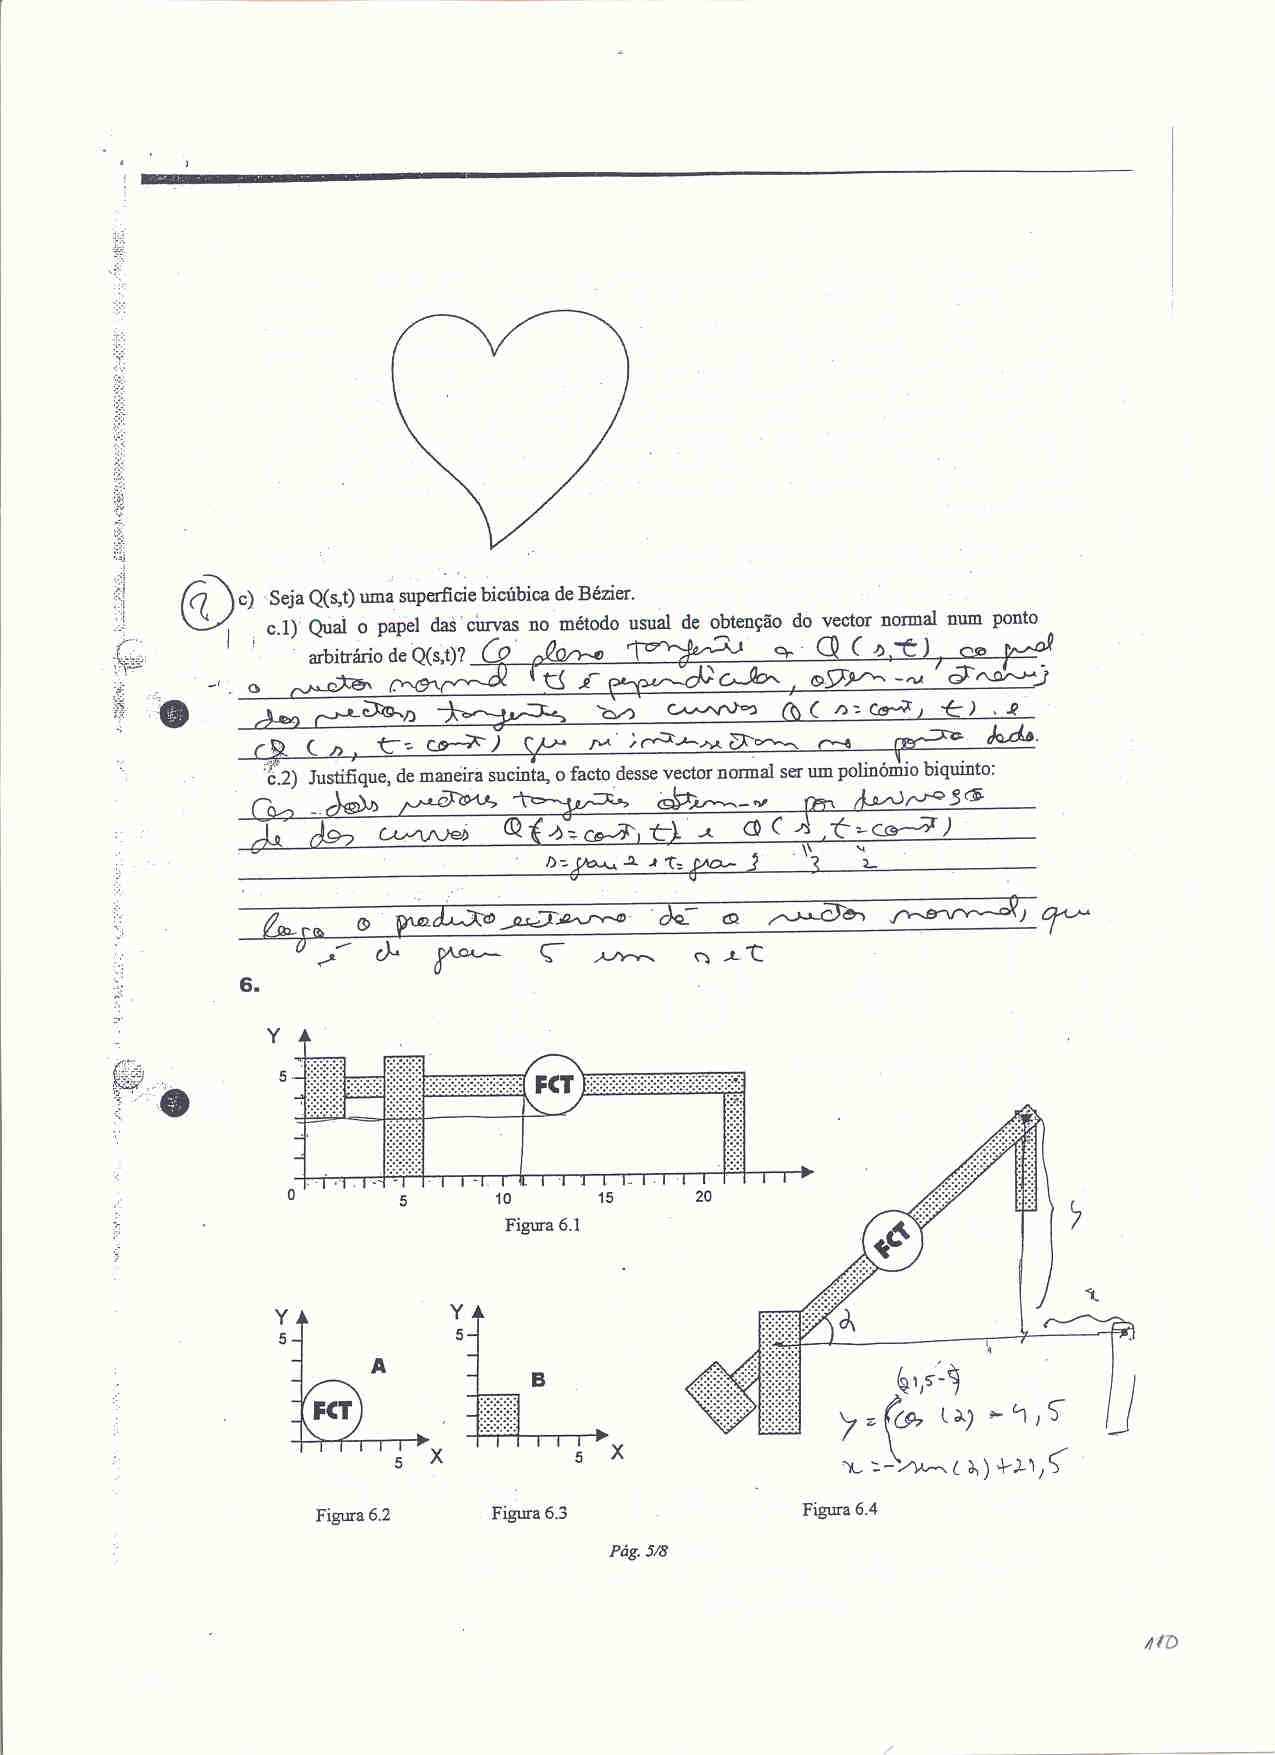 c) Seja Q(s,t) uma superfície bicúbica de Bézier.
c.1) Qual o papel das curvas no método usual de obtenção do vector normal num ponto
arbitrário de Q(s,t)? O plano tangente a Q(s,t), ao qual
o vector normal é pependicular, obtem-se através
dos vectores tangentes às curvas Q(s=const, t) e
Q(s, t=const) que se intersectam no ponto dado.
c.2) Justifique, de maneira sucinta, o facto desse vector normal ser um polinómio biquinto:
Os dois vectores tangentes obtem-se por derivação
de das curvas Q(s=const, t) e Q(s, t=const)
s=grau 2 e t=grau 3 3 2
logo o produto externo dá o vector normal, que
é de grau 5 em s e t
6.
Y
5
FCT
0 5 10 15 20
Figura 6.1
FCT
y
x
α
Y Y
5 5
A
B
FCT
5 X
5 X
(21,5-5)
y = cos (α) - 4,5
x = -sen(α)+21,5
Figura 6.2 Figura 6.3 Figura 6.4
Pág. 5/8
110